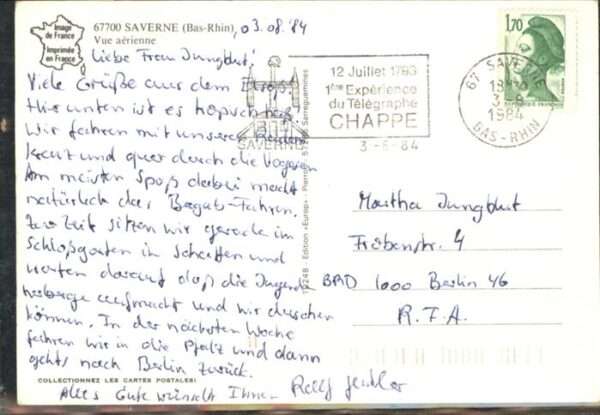 Image
de France
Imprimée
en France
67700 SAVERNE (Bas-Rhin), 03.08.84
Vue aérienne
Liebe Frau Jungblut!
Viele Grüße aus dem
Hier unten ist es hopsch heiß!
Wir fahren mit unseren Rädern
kreuz und quer durch die Vogesen
Am meisten Spaß dabei macht
natürlich das Bergab-Fahren.
Zur Zeit sitzen wir gerade im
Schloßgarten im Schatten und
warten darauf daß die Jugend-
herberge aufmacht und wir duschen
können. In der nächsten Woche
fahren wir in die Pfalz und dann
gehts nach Berlin zurück.
COLLECTIONNEZ LES CARTES POSTALES!
Alles Gute wünscht Ihnen Rolf
SAVERNE
12 Juillet 1793
1ère Expérience
du Télégraphe
CHAPPE
3-8-84
1,70
67 SAVERNE
18H
3-8
1984
BAS-RHIN
Edition «Europ» Pierron Sarreguemines
Martha Jungblut
Fröbenstr. 4
BRD 1000 Berlin 46
R.F.A.